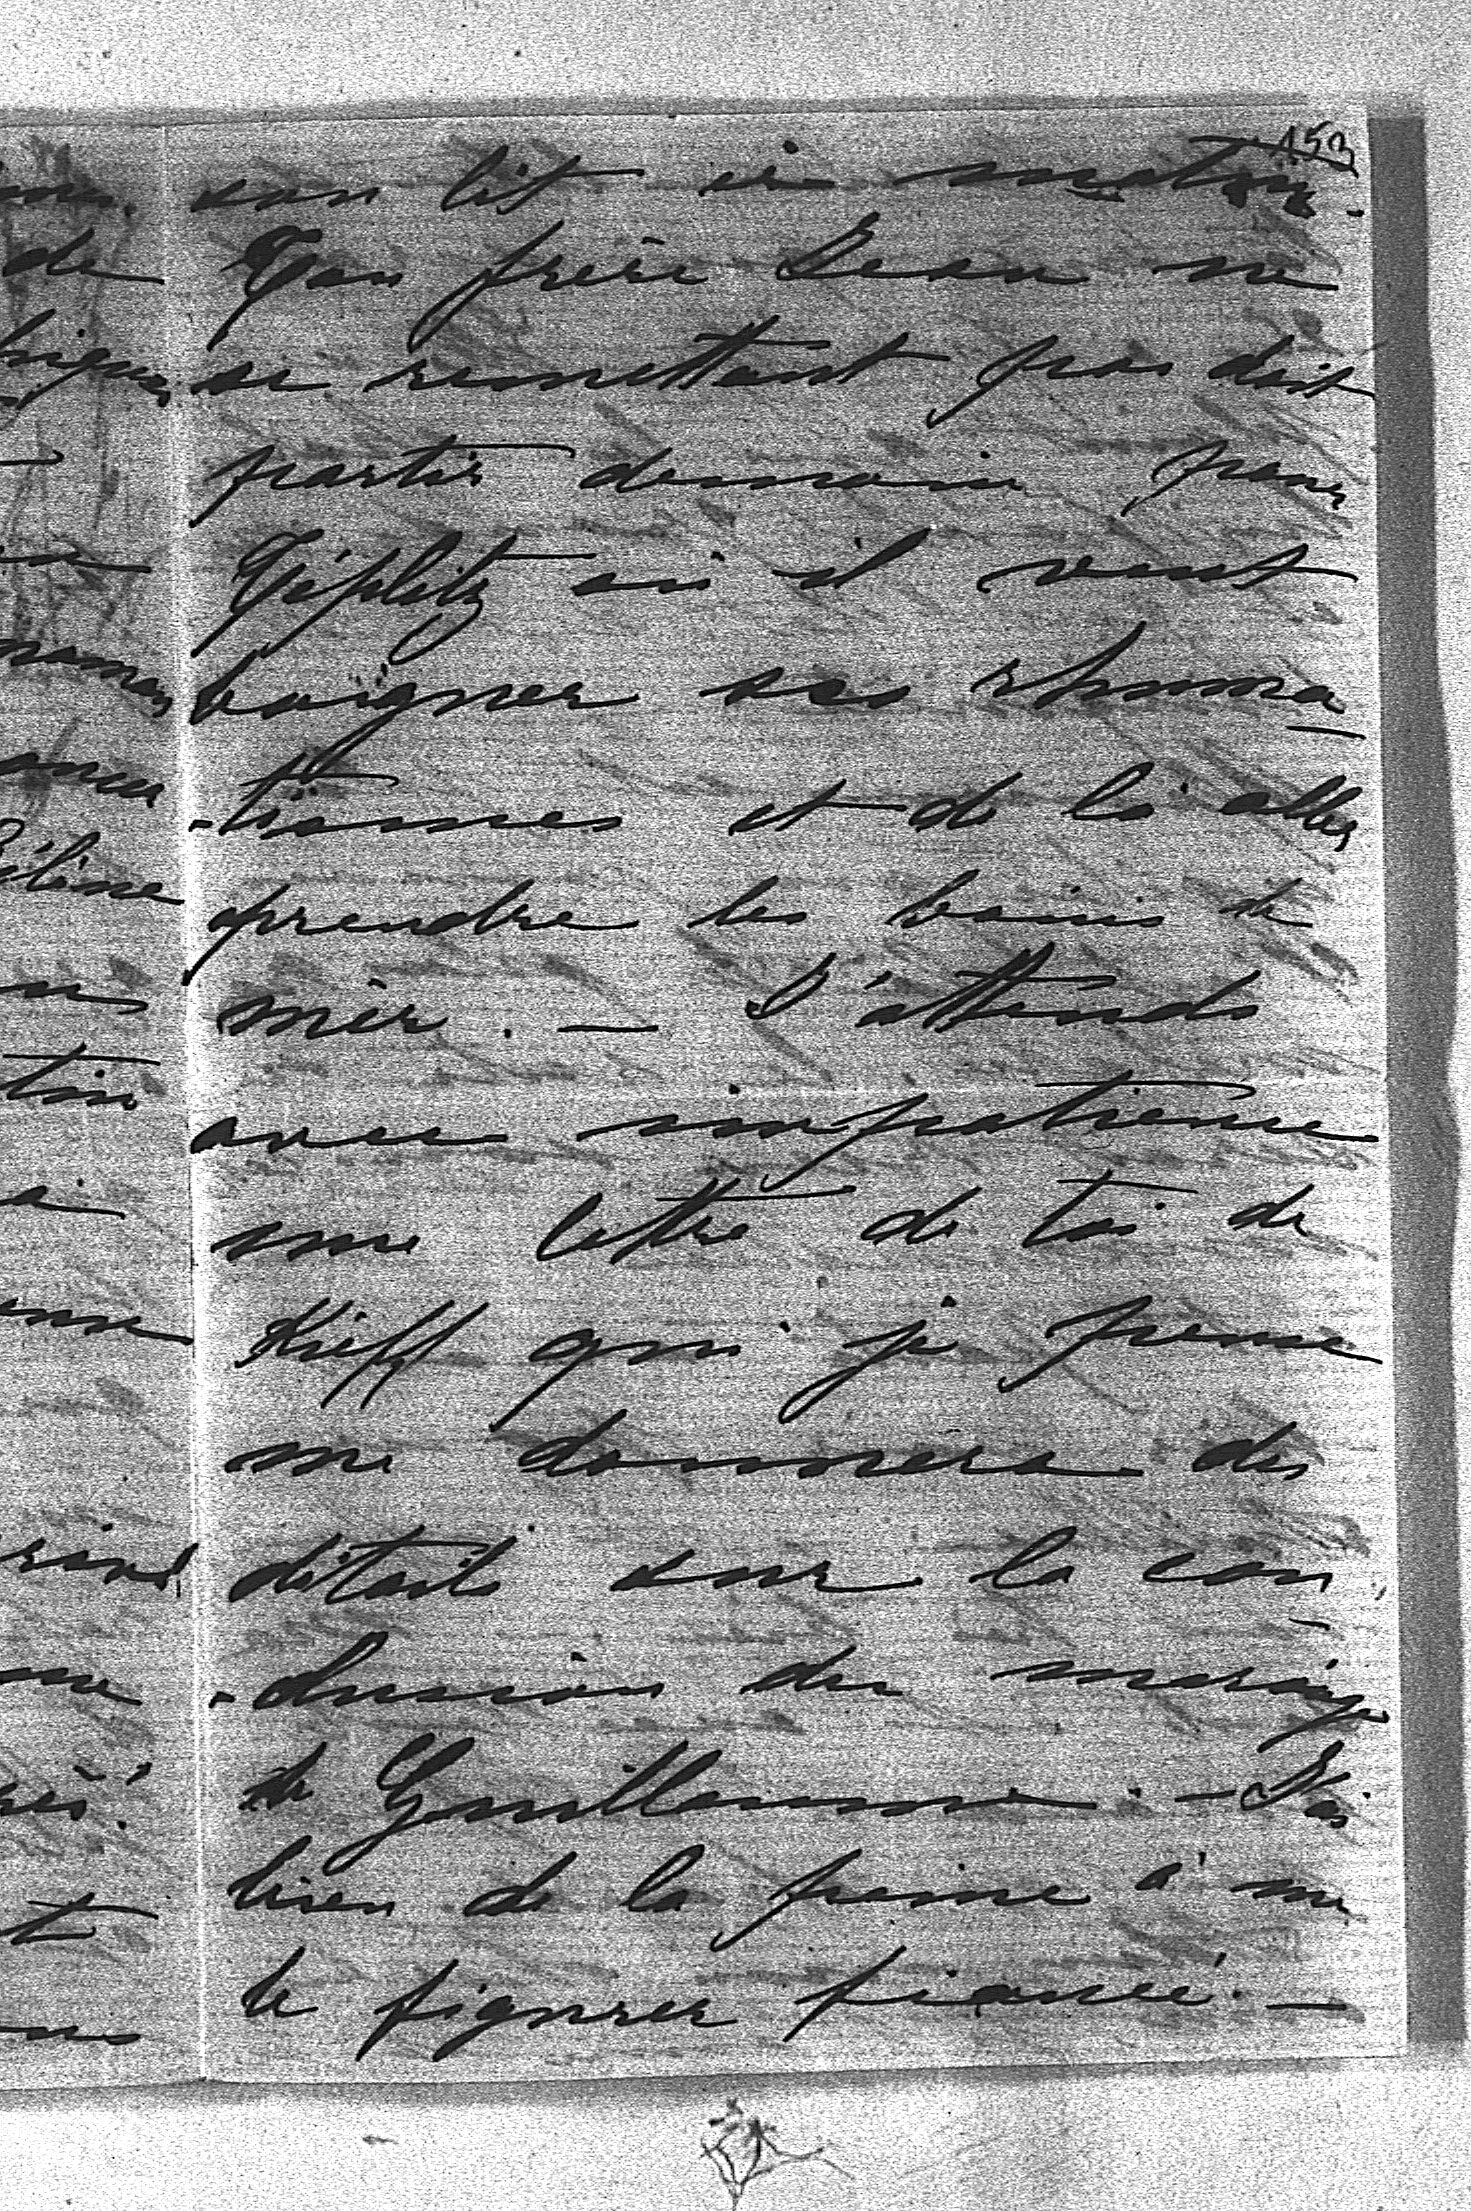 153
son lit ce matin.
Ton frère Jean ne
se remettant pas doit
partir demain pour
Téplitz où il veut
baigner ses rhuma
-tismes et de là aller
prendre les bains de
mer. — J'attends
avec impatience
une lettre de toi de
Kieff qui je pense
me donnera des
détails sur la con
-clusion du mariage
de Guillaume. — J'ai
bien de la peine à me
le figurer fiancé. —
de